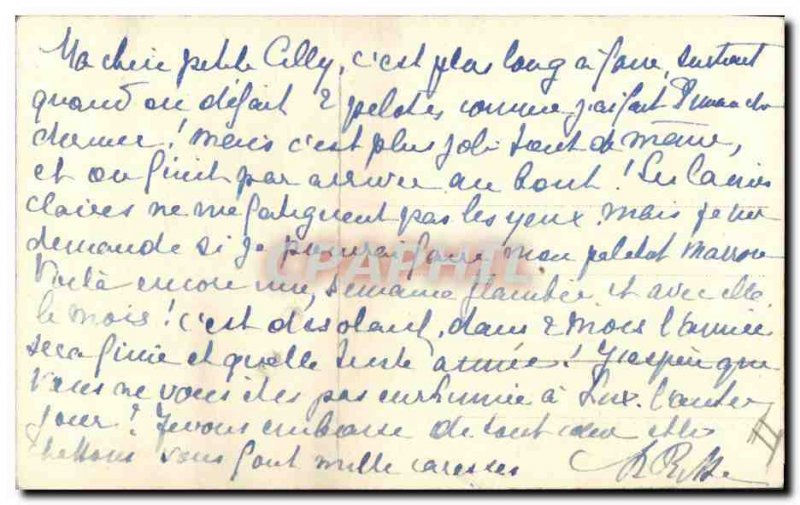 Ma chère petite Cilly, c'est plus long à faire, surtout
quand on défait 2 pelotes comme j'ai fait Dimanche
dernier! mais c'est plus joli tout de même,
et on finit par arriver au bout! Les laines
claires ne me fatiguent pas les yeux. mais je me
demande si je pourrai faire mon paletot marron
Voilà encore une semaine et avec elle
le mois! c'est désolant, dans 2 mois l'année
sera finie et quelle triste année! J'espère que
vous ne vous êtes pas enrhumée à Lux. l'autre
jour? Je vous embrasse de tout cœur et les
vous font mille caresses
CPAPHIL